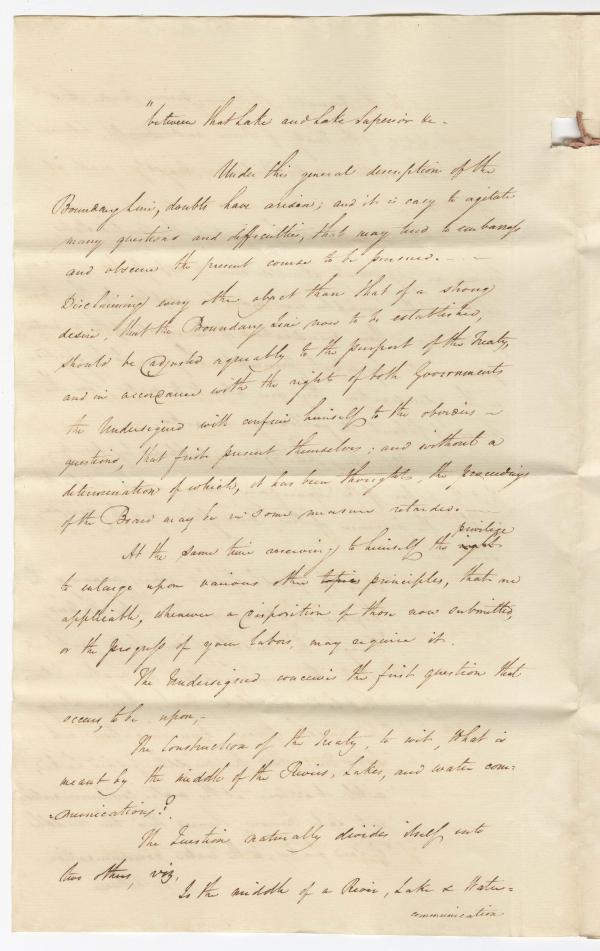 "between that Lake and Lake Superior &c.
Under this general description of the
Boundary Line, doubts have arisen; and it is easy to agitate
many questions and difficulties, that may tend to embarrass
and obscure the present course to be pursued.
Disclaiming every other object than that of a strong
desire, that the Boundary Line now to be established,
should be adjusted agreeably to the purport of the Treaty,
and in accordance with the rights of both Governments
the Undersigned will confine himself to the obvious
questions, that first present themselves; and without a
determination of which, it has been thought, the proceedings
of the Board may be in some measure retarded.
At the same time reserving to himself the right privilege
to enlarge upon various other topics principles, that are
applicable, whenever a disposition of those now submitted,
or the progress of your labors, may require it.
The Undersigned conceives the first question that
occurs, to be upon,
The Construction of the Treaty, to wit, What is
meant by the middle of the Rivers, Lakes, and water com=
=munications?
The Question naturally divides itself into
two others, viz.
Is the middle of a River, Lake & Water=
communication